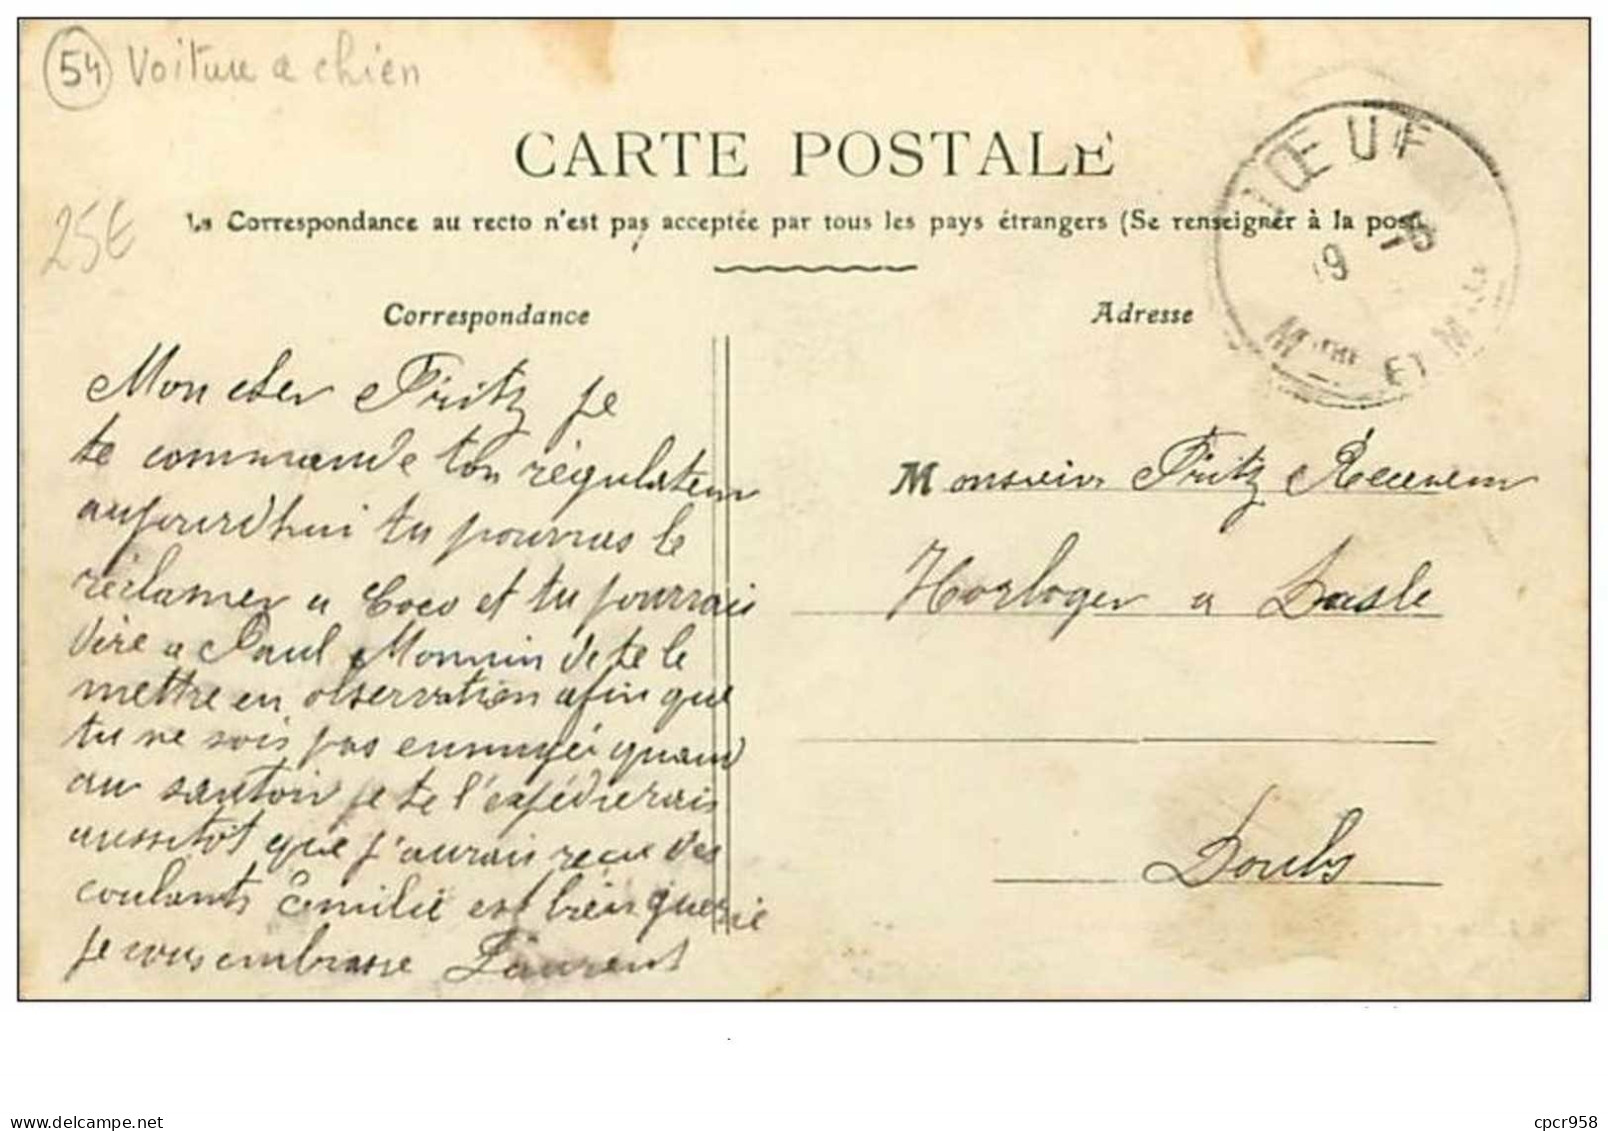 54 Voiture a chien
25€
CARTE POSTALE
La Correspondance au recto n'est pas acceptée par tous les pays étrangers (Se renseigner à la poste
Correspondance
Adresse
19 -5
ET M
Mon cher Fritz je
te commande ton régulateur
aujourd'hui tu pourras le
réclamer a Coco et tu pourrais
dire a Paul Monnin de te le
mettre en observation afin que
tu ne sois pas ennuyéi quand
au sautoir je te l'expédierais
aussitôt que j'aurais recu des
coulants Emilie est bien guerrie
je vous embrasse Laurent
Monsieur Fritz
Horloger a Dasle
Doubs
Voiture a chien
cpcr958